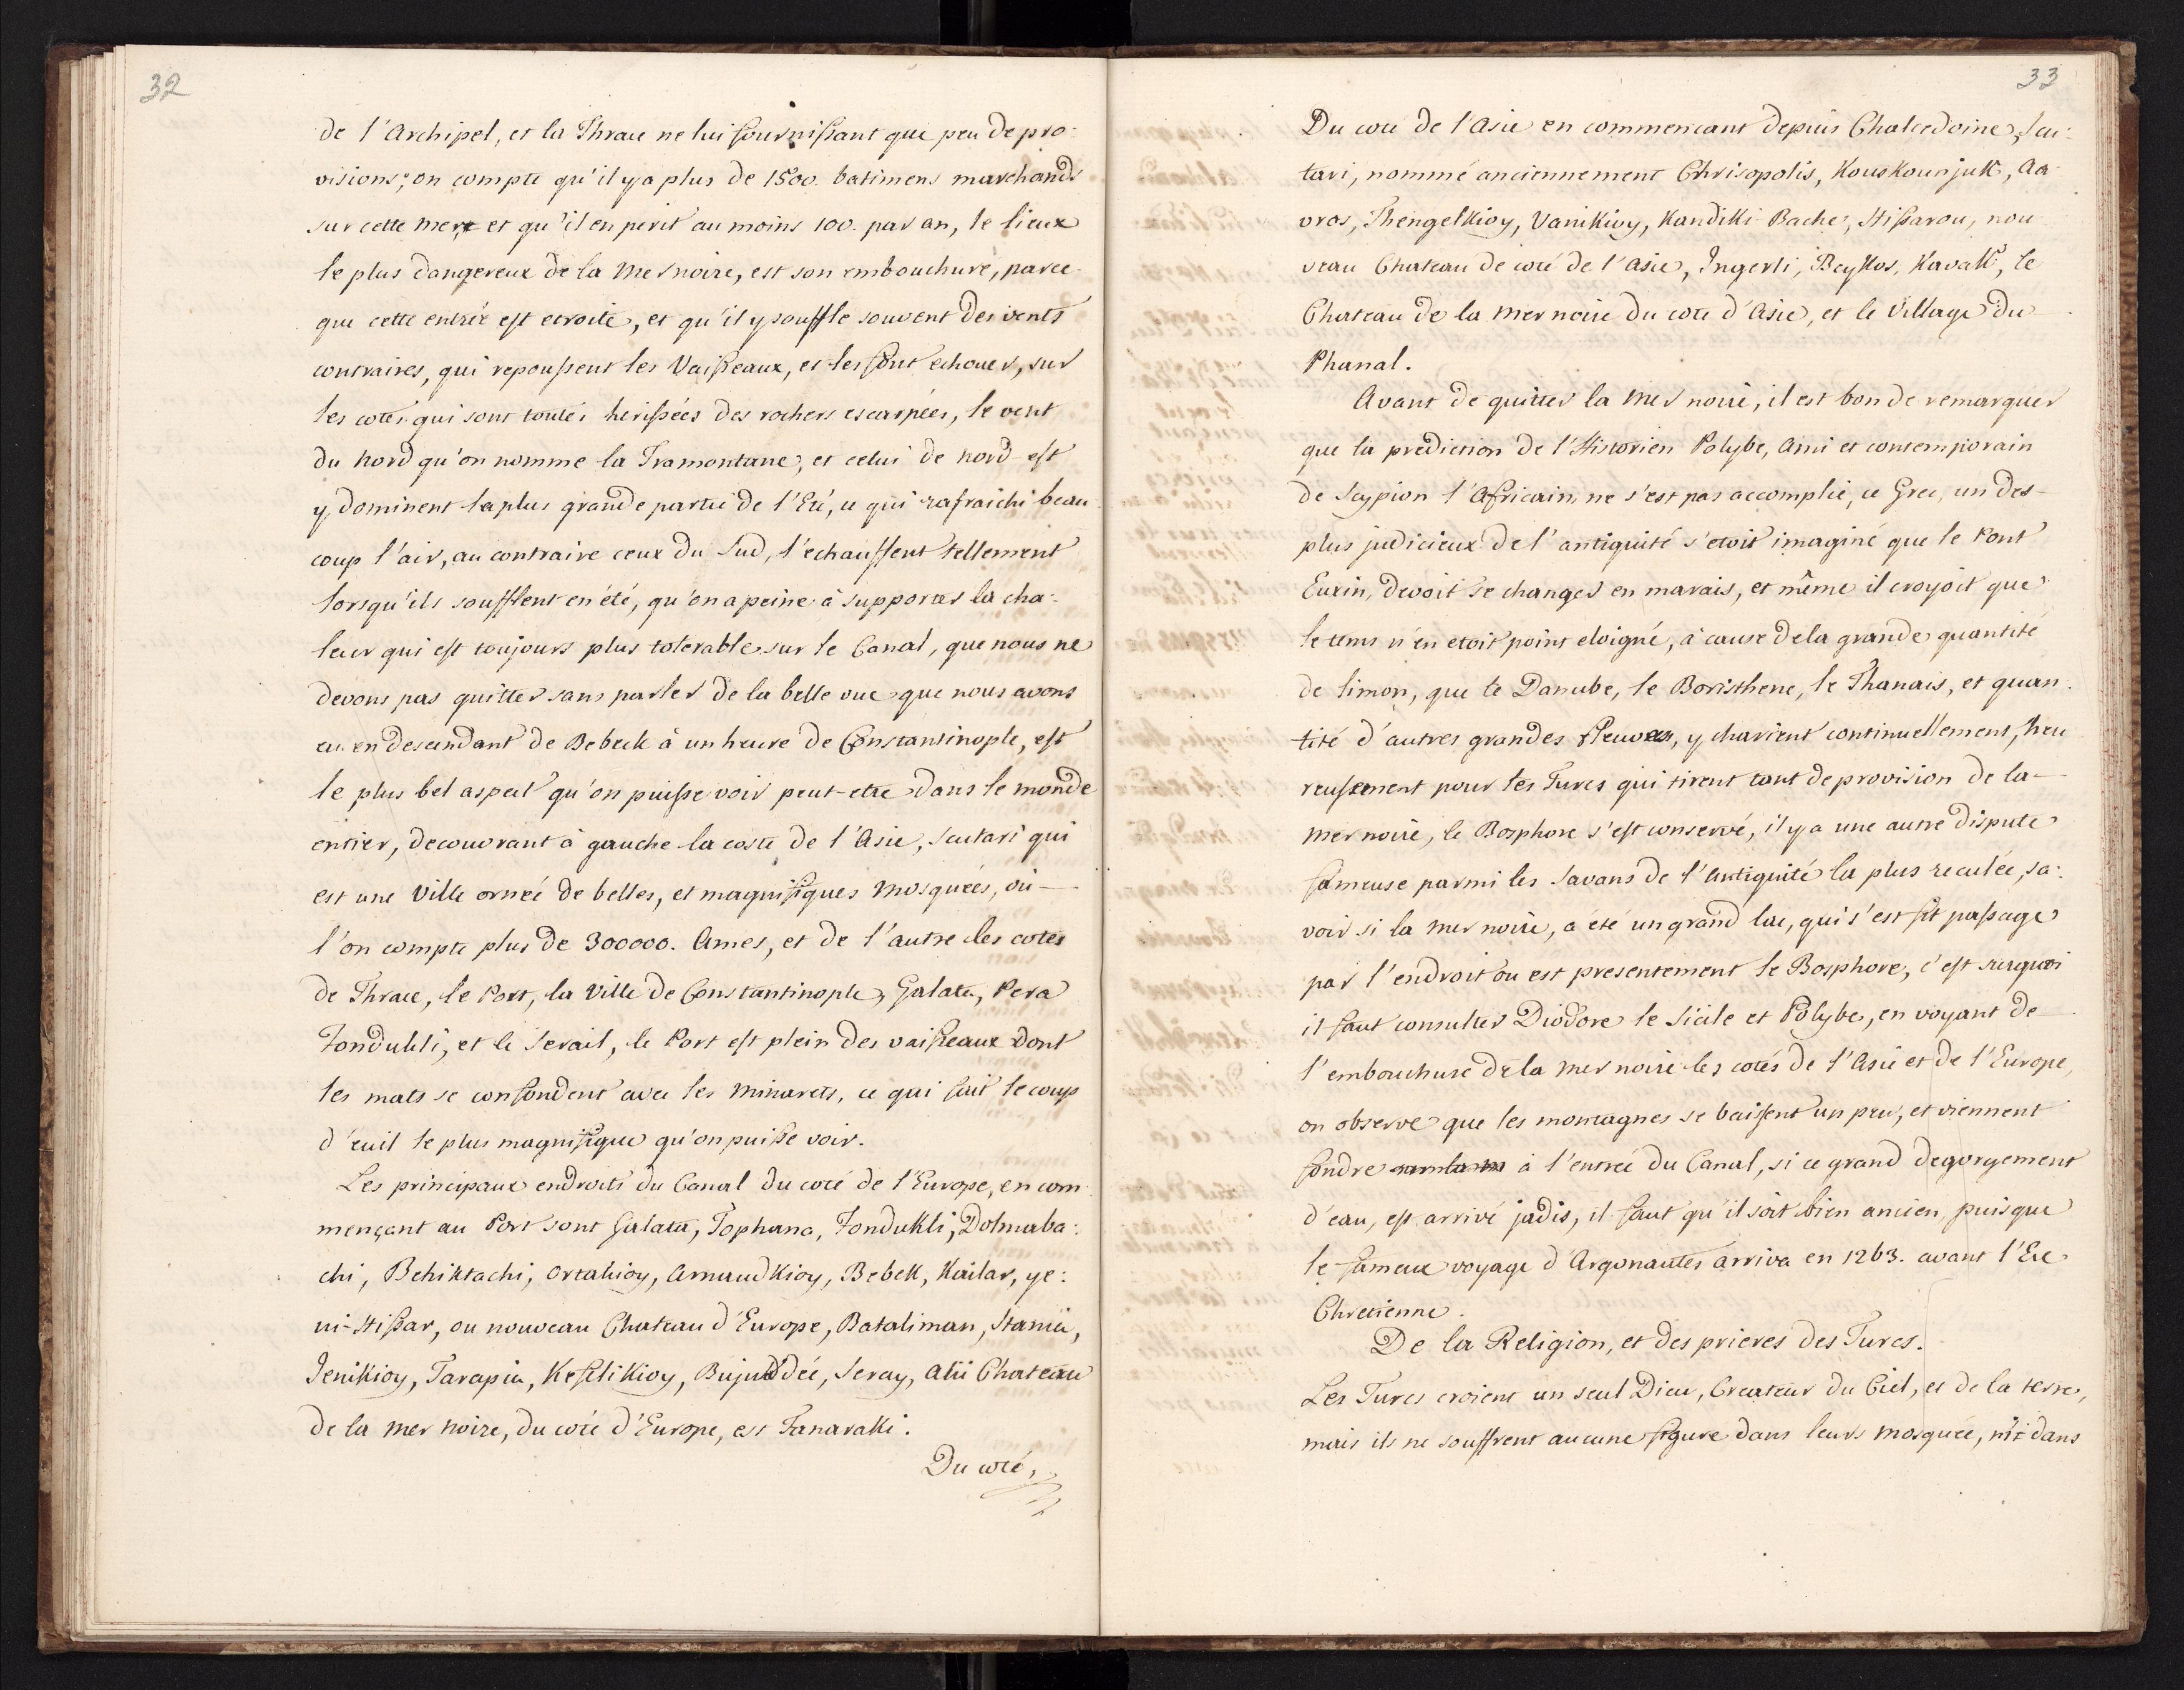 32
de l'Archipel, et la Thrace ne lui fournissant que peu de pro:
visions; on compte qu'il y a plus de 1500. batimens marchands
sur cette mer et qu'il en perit au moins 100. par an, le lieux
le plus dangereux de la Mer noire, est son embouchure, parce
que cette entrée est etroite, et qu'il y souffle souvent des vents
contraires, qui repoussent les Vaisseaux, et les font echouer, sur
les cotes qui sont toutes herissées des rochers escarpées, le vent
du Nord qu'on nomme la Tramontane, et celui de Nord-est
y dominent la plus grande partie de l'Eté, ce qui rafraichi beau
coup l'air, au contraire ceux du Sud, l'echauffent tellement
lorsqu'ils soufflent en été, qu'on a peine à supporter la cha:
leur qui est toujours plus tolerable sur le Canal, que nous ne
devons pas quitter sans parler de la belle vue que nous avons
eu en descendant de Bebeck à un heure de Constantinople, est
le plus bel aspect qu'on puisse voir peut-etre dans le monde
entier, decouvrant à gauche la coste de l'Asie, Scutari qui
est une Ville ornée de belles, et magnifiques Mosquées, où
l'on compte plus de 300000. Ames, et de l'autre les cotes
de Thrace, le Port, la Ville de Constantinople, Galata, Pera
Fondukli, et le Serail, le Port est plein des vaisseaux dont
les mats se confondent avec les Minarets, ce qui fait le coup
d'euil le plus magnifique qu'on puisse voir.
Les principaux endroits du Canal du coté de l'Europe, en com
mençant au Port sont Galata, Tophana, Fondukli, Dolmaba:
chi, Behiktachi, Ortakioy, Arnaudkioy, Bebek, Kailar, ye:
ni-Hissar, ou nouveau Chateau d'Europe, Bataliman, Stania,
Jenikioy, Tarapia, Kefelikioy, Bujukdée, Seray, Alü Chateau
de la Mer Noire, du coté d'Europe, est Fanaraki.
Du coté,
33
Du coté de l'Asie en commencant depuis Chalcedoine, Scu:
tari, nommé anciennement Chrisopolis, Kouskounjuk, Aa
vros, Thengelkioy, Vanikioy, Kandiki-Bache, Hissarou, nou
veau Chateau de coté de l'Asie, Ingerli, Beykos, Kavak, le
Chateau de la Mer noire du coté d'Asie, et le Village du
Phanal.
Avant de quitter la Mer noire, il est bon de remarquer
que la prediction de l'Historien Polybe, Ami et contemporain
de Scypion l'Africain ne s'est pas accomplie, ce Grec, un des
plus judicieux de l'antiquité s'etoit imaginé que le Pont
Euxin, devoit se changer en marais, et même il croyoit que
le tems n'en etoit point eloigné, à cause de la grande quantité
de limon, que le Danube, le Boristhene, le Thanais, et quan
tité d'autres grandes Fleuves, y charient continuellement, heu
reusement pour les Turcs qui tirent tant de provision de la
mer noire, le Bosphore s'est conservé, il y a une autre dispute
fameuse parmi les Savans de l'Antiquité la plus reculée, sa:
voir si la Mer noire, a été un grand lac, qui s'est fit passage
par l'endroit ou est presentement le Bosphore, c'est surquoi
il faut consulter Diodore le Sicile et Polybe, en voyant de
l'embouchure de la Mer noire les cotés de l'Asie et de l'Europe,
on observe que les montagnes se baissent un peu, et viennent
fondre à l'entrée du Canal, si ce grand degorgement
d'eau, est arrivé jadis, il faut qu'il soit bien ancien, puisque
le fameux voyage d'Argonautes arriva en 1263. avant l'Ere
Chretienne.
De la Religion, et des prieres des Turcs.
Les Turcs croient un seul Dieu, Createur du Ciel, et de la terre,
mais ils ne souffrent aucune figure dans leurs mosquée, ni dans